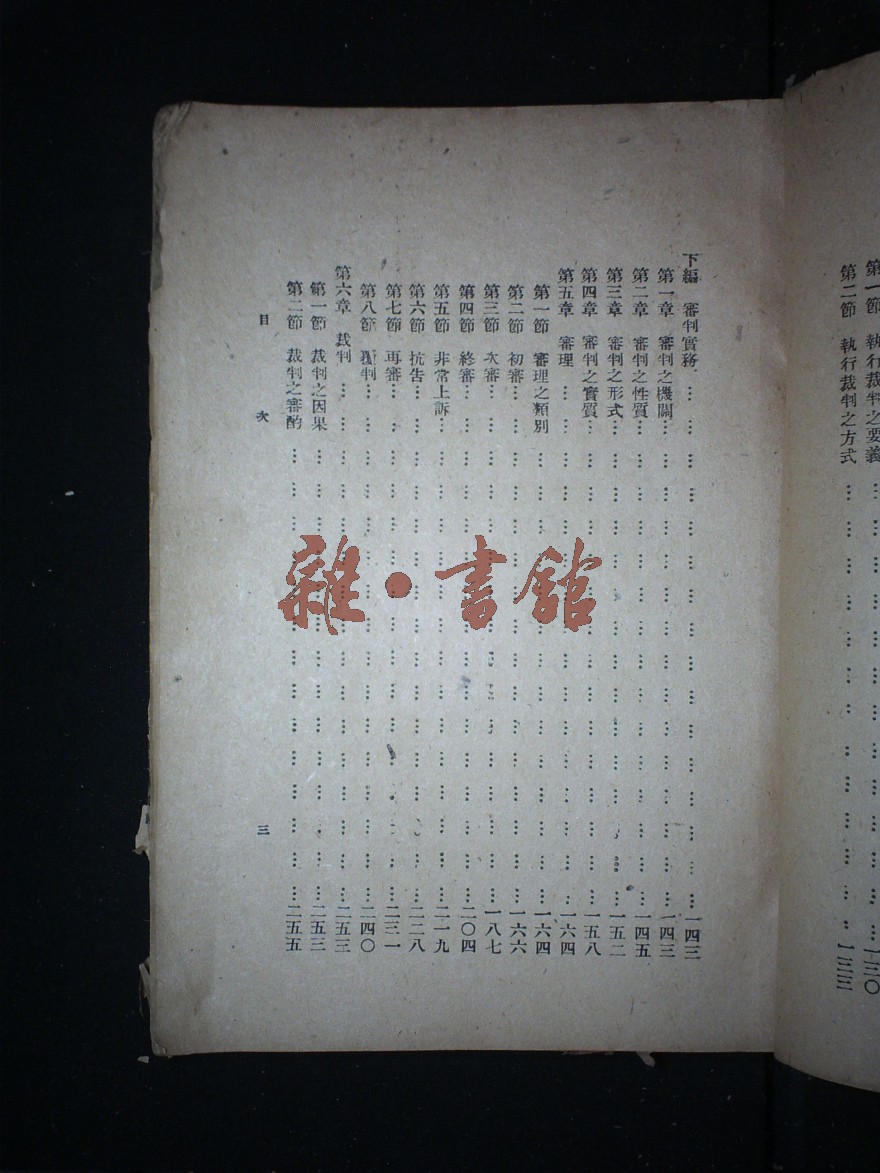 第一節　執行裁判之要義…一三〇
第二節　執行裁判之方式…一三三
下編　審判實務…一四三
第一章　審判之機關…一四三
第二章　審判之性質…一四五
第三章　審判之形式…一五二
第四章　審判之實質…一五八
第五章　審理…一六四
第一節　審理之類別…一六四
第二節　初審…一六六
第三節　次審…一八七
第四節　終審…二〇四
第五節　非常上訴…二一九
第六節　抗告…二二八
第七節　再審…二三一
第八節　覆判…二四〇
第六章　裁判…二五三
第一節　裁判之因果…二五三
第二節　裁判之審酌…二五五
目次　三
雜·書館